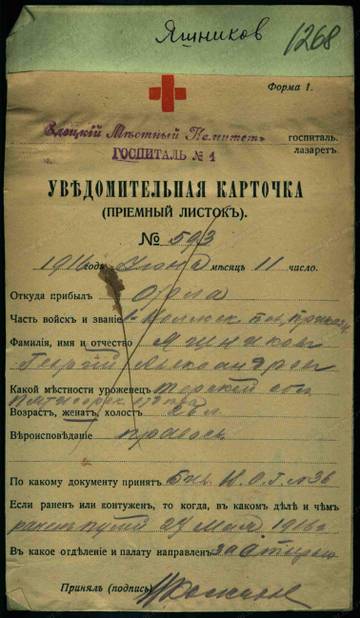 Яшников
1268
Форма 1.
Елецкій Мѣстный Комитетъ госпиталь.
ГОСПИТАЛЬ № 1 лазаретъ.
УВѢДОМИТЕЛЬНАЯ КАРТОЧКА
(ПРІЕМНЫЙ ЛИСТОКЪ).
№ 593
1916 годъ Іюня мѣсяцъ 11 число.
Откуда прибылъ Орла
Часть войскъ и званіе
Фамилія, имя и отчество Яшников
Георгій Александров
Какой мѣстности уроженецъ Терской обл
Возрастъ, женатъ, холостъ
Вѣроисповѣданіе правосл
По какому документу принятъ
Если раненъ или контуженъ, то когда, въ какомъ дѣлѣ и чѣмъ
раненъ пулей 27 мая 1916 г
Въ какое отдѣленіе и палату направленъ
Принялъ (подпись)